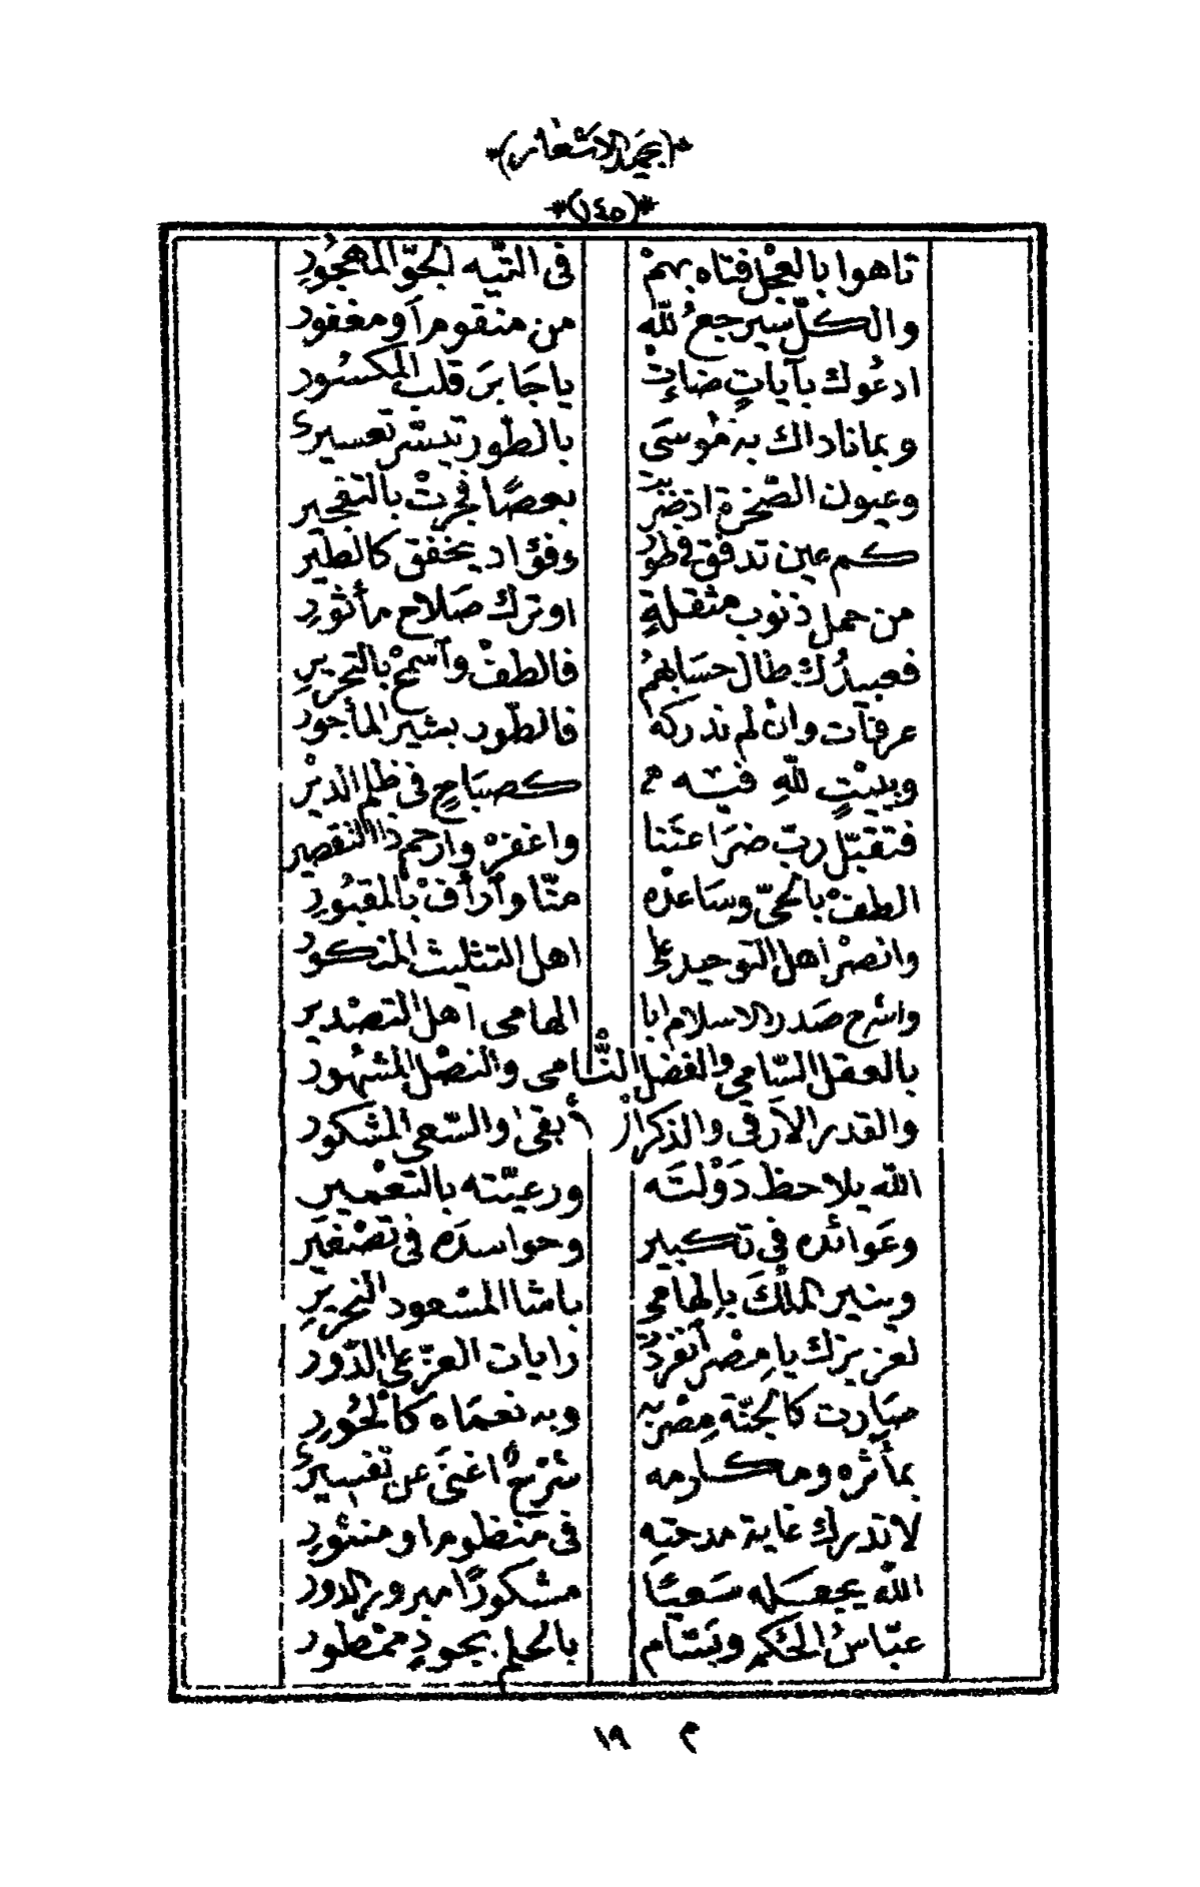 (١٤٥)
تاهوا بالعجل فتاه بهمْ فى التّيه الجوّ المهجُورِ
والكلّ سيرجعُ للّٰهِ من منقوم أو مغفور
ادعُوك بآياتٍ ضاءتْ ياجَابرَ قلب المكسُور
وبما ناداك به مُوسَى بالطّور تيسّر تعسيرى
وعيون الصّخرة اذ ضربت بعصًا فجرتْ بالتفجير
كم عين تدفق فؤاد يخفق كالطير
من حمل ذنوب مثقلةٍ او ترك صَلاح مأثورِ
فعبيدُك طال حسَابهمُ فالطفْ وآسمحْ بالتحريرِ
عرفآت وانْ لم ندركهَ فالطّور بعشير المأجور
وببيْتٍ للّٰهِ فيه كصبَاحٍ فى ظلم الديْر
فتقبّل ربّ ضرَاعتَنا واغفرْ وارحم ذا التقصير
الطفْ بالحىّ وسَاعدْه منّا وآرأفْ بالمقبُورِ
وانصرْ اهل التوحيد على اهل التثليث المذكور
واشرح صَدر الاسلام ابا الهامى اهل التصْدير
بالعقل السّامى والفضل النَّامى والنصْل المشهُور
والقدر الاَرقى والذكر أبقى والسّعى المشكور
اللّٰه يلاحظ دَوْلتَه ورعيّته بالتعْمير
وعَوائده فى تكبير وحواسدَه فى تصْغير
وينير الملْكَ بالهامى باشا المسْعود النحريرِ
لعزيزك يا مِصْر أنفردتْ رايات العزّ على الدّور
صَارت كالجنّة مِصْر به وبه نعمَاه كالْحُورِ
بمأثره ومكارمه شرْحٌ اغنَى عن تفسيرى
لا تدرك غاية مدحتهِ فى منظوم او منثورِ
اللّٰه يجعَله سَعيًا مشكورًا مبرور الدور
عبّاسُ الحُكم وبسّام بالحلم بجودٍ ممْطور
م ١٩